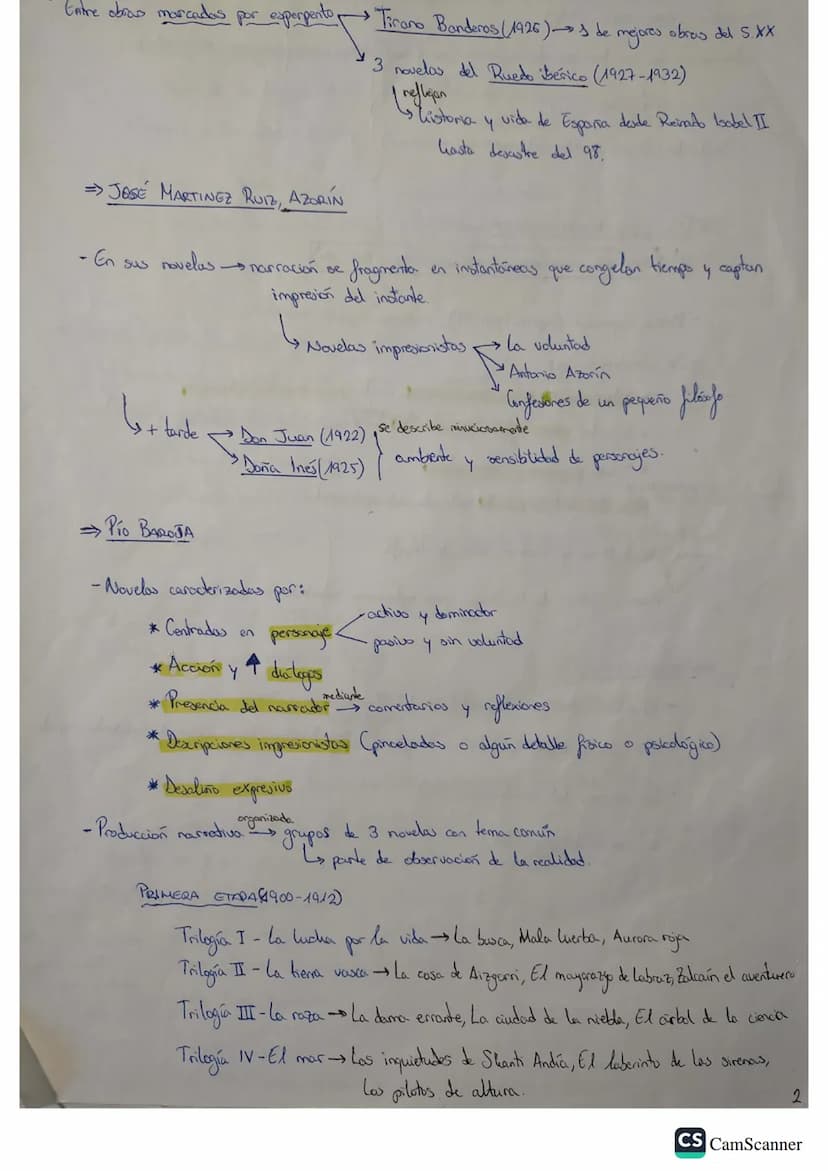 Entre obras marcadas por esperpento → Tirano Banderas (1926) → 1 de mejores obras del S.XX
3 novelas del Ruedo ibérico (1927-1932)
reflejan
historia y vida de España desde Reinado Isabel II
hasta desastre del 98.
⇒ JOSÉ MARTINEZ RUIZ, AZORÍN
- En sus novelas → narración se fragmenta en instantáneas que congelan tiempo y captan
impresión del instante.
Novelas impresionistas → La voluntad
Antonio Azorín
Confesiones de un pequeño filósofo
+ tarde → Don Juan (1922) se describe minuciosamente
Doña Inés (1925) ambiente y sensibilidad de personajes.
⇒ PÍO BAROJA
- Novelas caracterizadas por:
activo y dominador
* Centradas en personaje
pasivo y sin voluntad
* Acción y ↑ diálogos
* Presencia del narrador mediante → comentarios y reflexiones
* Descripciones impresionistas (pinceladas o algún detalle físico o psicológico)
* Desaliño expresivo
- Producción narrativa organizada → grupos de 3 novelas con tema común
↳ parte de observación de la realidad.
PRIMERA ETAPA (1900-1912)
Trilogía I - La lucha por la vida → La busca, Mala hierba, Aurora roja
Trilogía II - La tierra vasca → La casa de Aizgorri, El mayorazgo de Labraz, Zalcaín el aventurero
Trilogía III - La raza → La dama errante, La ciudad de la niebla, El árbol de la ciencia
Trilogía IV - El mar → Las inquietudes de Shanti Andía, El laberinto de las sirenas,
Los pilotos de altura.
2
CS CamScanner